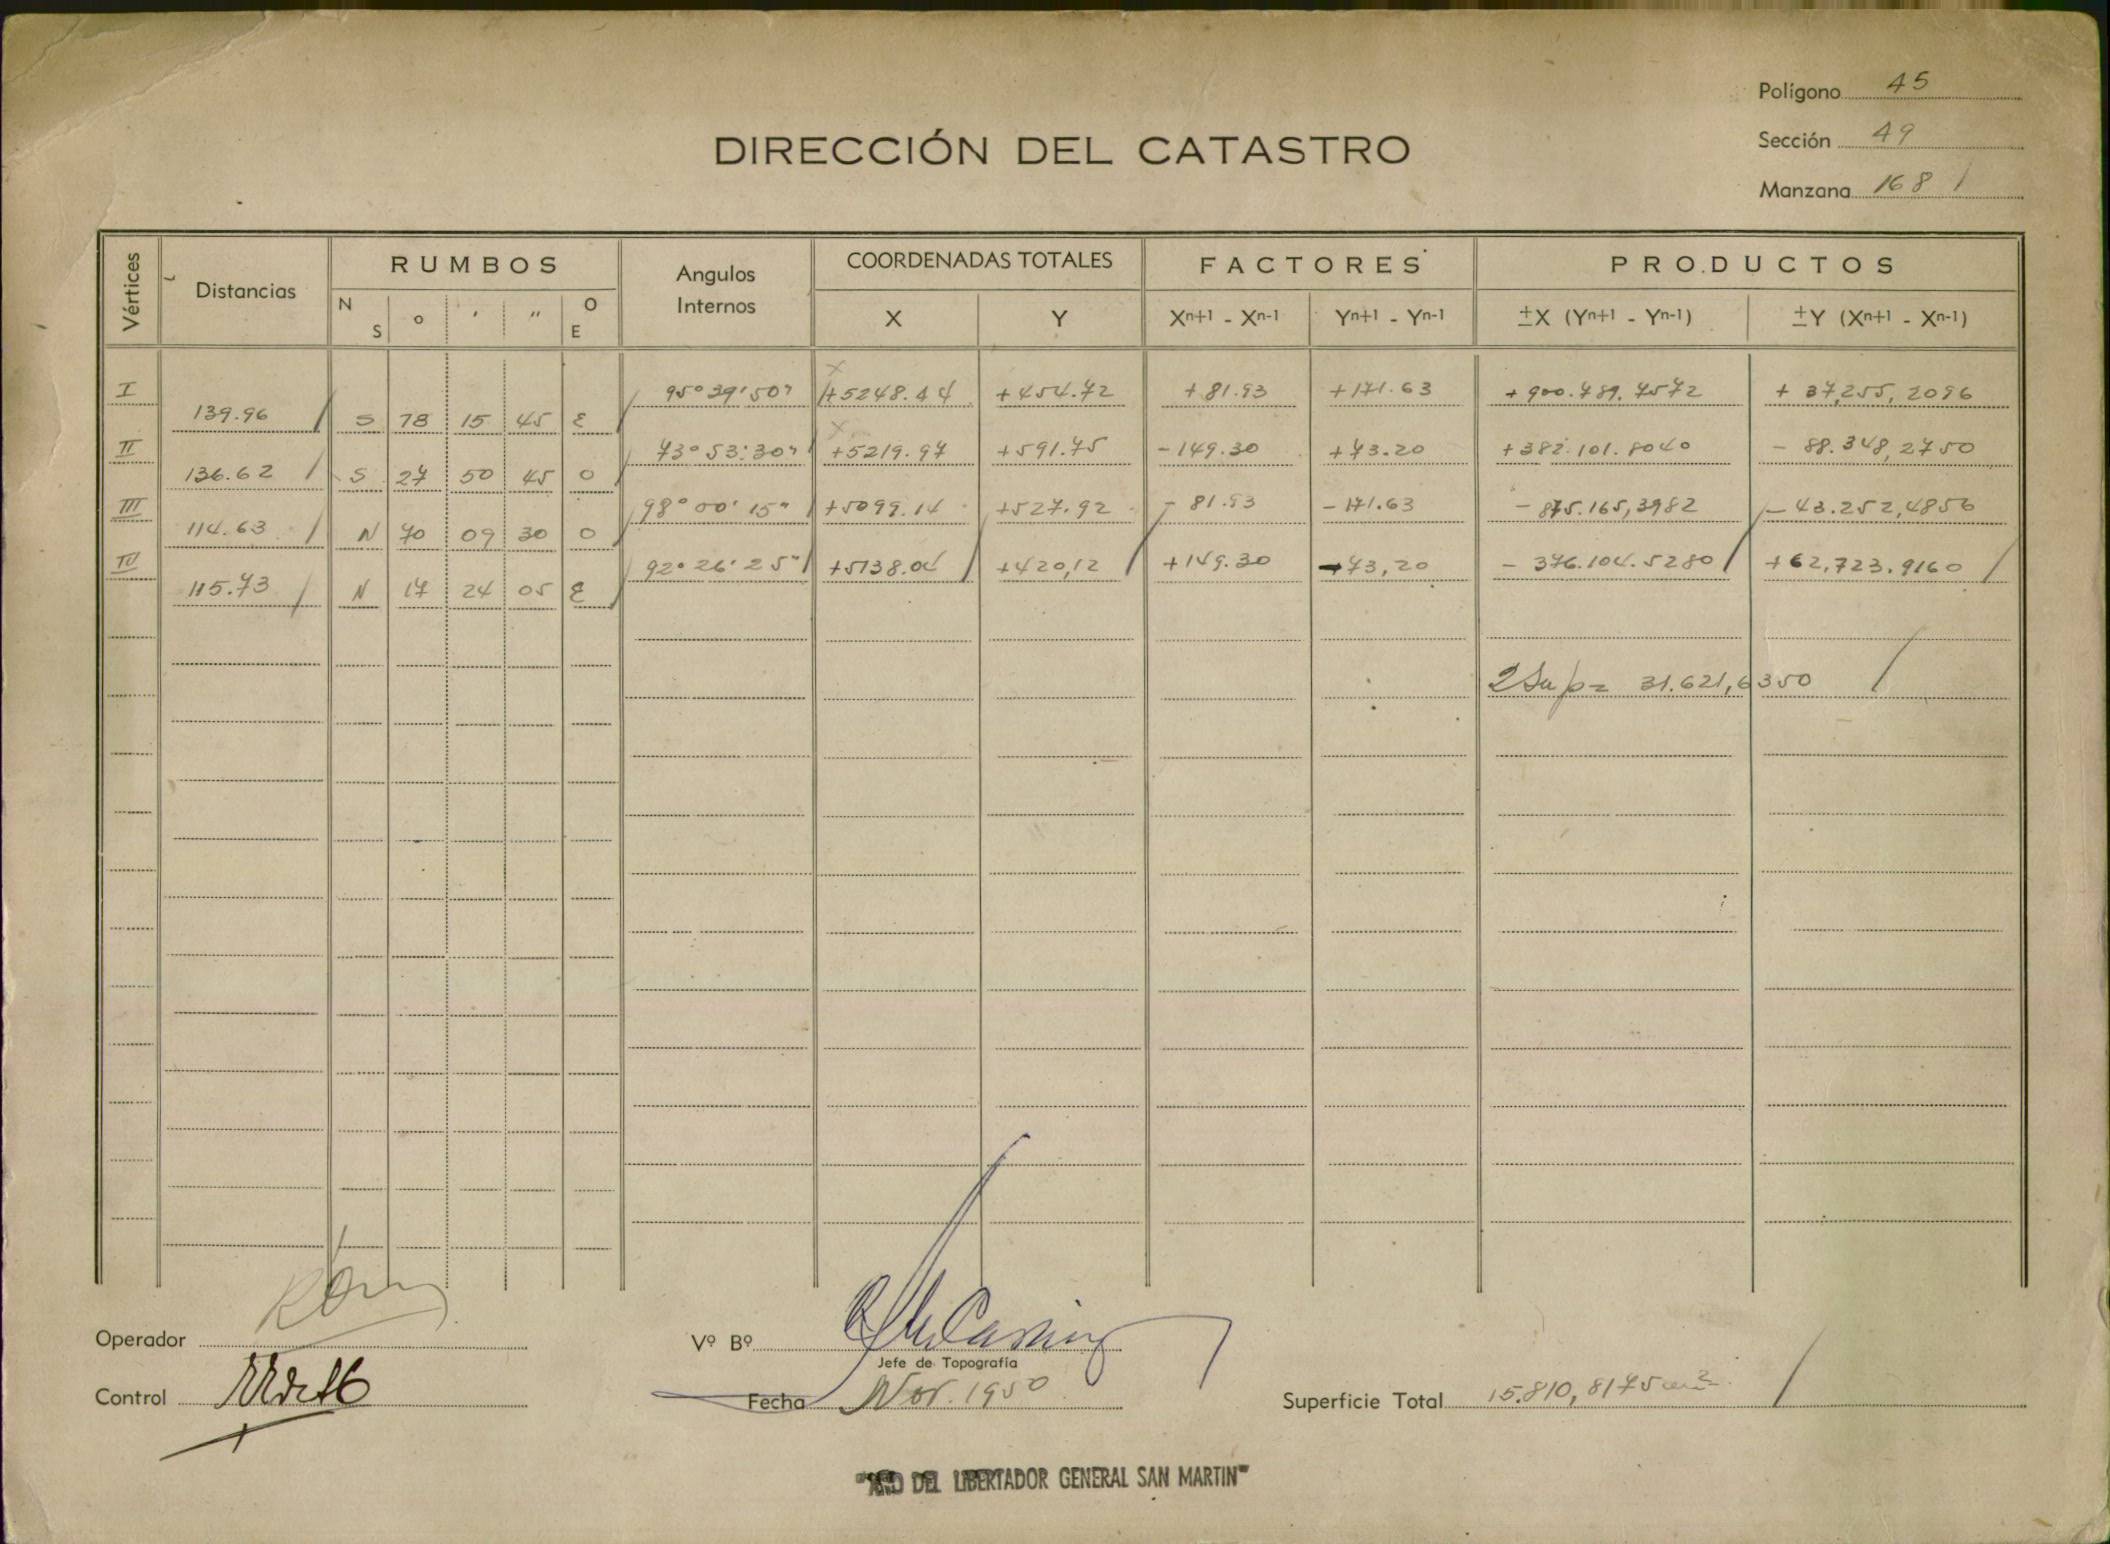 Polígono 45
DIRECCIÓN DEL CATASTRO
Sección 49
Manzana 168
Vértices
Distancias
RUMBOS
N S ° ' " O E
Angulos Internos
COORDENADAS TOTALES
X Y
FACTORES
Xn+1 - Xn-1 Yn+1 - Yn-1
PRODUCTOS
±X (Yn+1 - Yn-1) ±Y (Xn+1 - Xn-1)
I 95° 39' 50" +5248.44 +454.72 +81.93 +171.63 +900.789.7572 +37,255,2096
139.96 S 78 15 45 E
II 73° 53' 30" +5219.97 +591.75 -149.30 +73.20 +382.101.8040 -88.348,2750
136.62 S 27 50 45 O
III 98° 00' 15" +5099.14 +527.92 -81.93 -171.63 -875.165,3982 -43.252,4856
114.63 N 70 09 30 O
IV 92° 26' 25" +5138.04 +420,12 +149.30 -73,20 -376.104.5280 +62,723.9160
115.73 N 17 24 05 E
2Sup= 31.621,6350
Operador
Vº Bº
Jefe de Topografía
Control
Fecha Nov. 1950
Superficie Total 15.810,8175 m²
"AÑO DEL LIBERTADOR GENERAL SAN MARTIN"